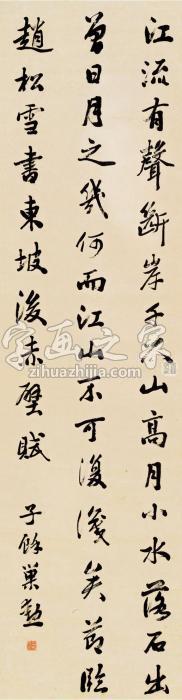 江流有聲斷岸千尺山高月小水落石出
曾日月之幾何而江山不可復識矣節臨
趙松雪書東坡後赤壁賦
子餘巢勳
字画之家
zihuazhijia.com